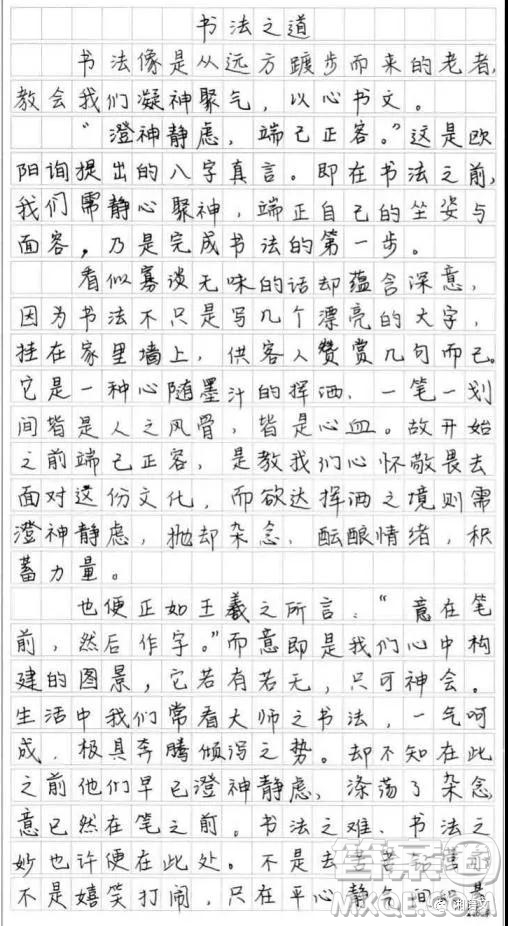 书法之道
书法像是从远方踱步而来的老者,
教会我们凝神聚气，以心书文。
“澄神静虑，端己正容。”这是欧
阳询提出的八字真言。即在书法之前,
我们需静心聚神，端正自己的坐姿与
面容，乃是完成书法的第一步。
看似寡谈无味的话却蕴含深意,
因为书法不只是写几个漂亮的大字，
挂在家里墙上，供客人赞赏几句而已。
它是一种心随墨汁的挥洒，一笔一划
间皆是人之风骨，皆是心血。故开始
之前端己正容，是教我们心怀敬畏去
面对这份文化，而欲达挥洒之境则需
澄神静虑，抛却杂念，酝酿情绪，积
蓄力量。
也便正如王羲之所言：“意在笔
前，然后作字。”而意即是我们心中构
建的图景，它若有若无，只可神会。
生活中我们常看大师之书法，一气呵
成，极具奔腾倾泻之势。却不知在此
之前他们早已澄神静虑，涤荡了杂念
意已然在笔之前。书法之难、书法之
妙也许便在此处。不是去苦苦
不是嬉笑打闹，只在平心静气间